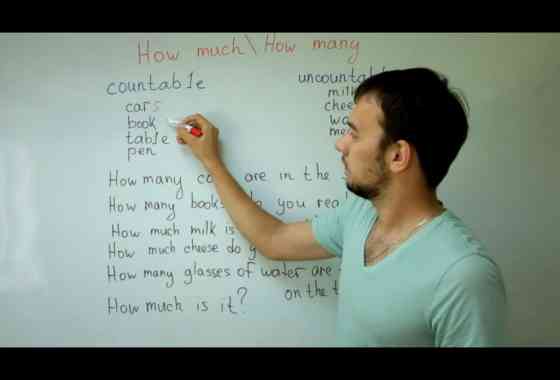 How much\How many
countable
cars
book
table
pen
uncountabl
milk
How many are in the
How many books you
How much milk is
How much cheese do
How many glasses of water are
on the
How much is it?